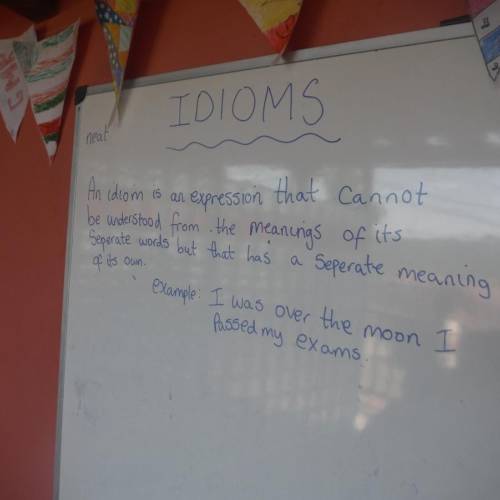 IDIOMS
neat
An idiom is an expression that cannot
be understood from the meanings of its
Seperate words but that has a Seperate meaning
of its own.
example: I was over the moon I
Passed my exams.